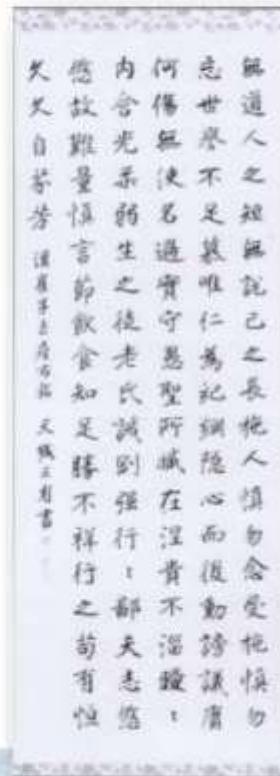 無道人之短無說己之長施人慎勿念受施慎勿
忘世譽不足慕唯仁為紀綱隱心而後動謗議庸
何傷無使名過實守愚聖所臧在涅貴不淄曖〻
內含光柔弱生之徒老氏誡剛強行〻鄙夫志悠
悠故難量慎言節飲食知足勝不祥行之苟有恒
久久自芬芳 漢崔子玉座右銘 書